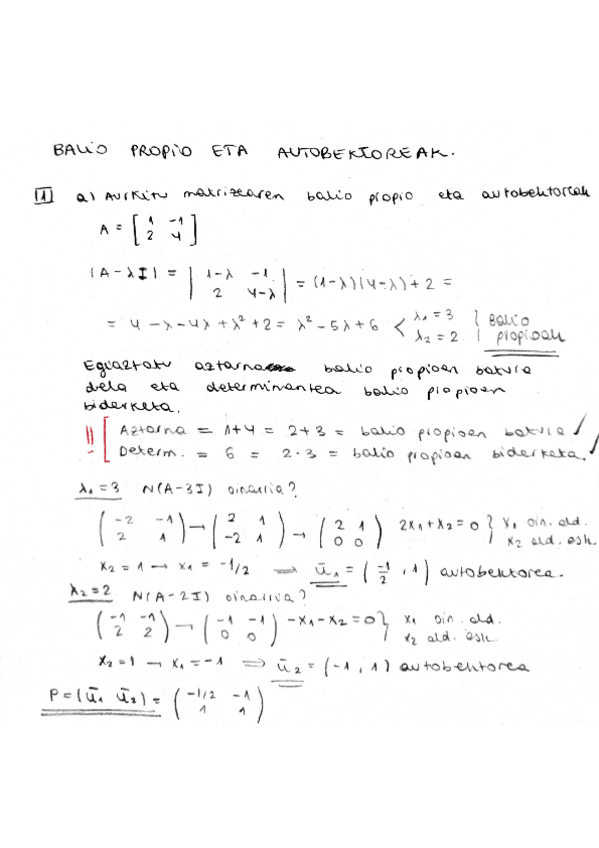 BALIO PROPIO ETA AUTOBEKTOREAK.
1 a) Aurkitu matrizearen balio propio eta autobektoreak
A = [1 -1
2 4]
|A-λI| = |1-λ -1
2 4-λ| = (1-λ)(4-λ)+2 =
= 4-λ-4λ+λ²+2 = λ²-5λ+6 < λ₁ = 3
λ₂ = 2 } Balio propioak
Egiaztatu aztarna balio propioen batura
dela eta determinantea balio propioen
biderketa.
!! [ Aztarna = 1+4 = 2+3 = balio propioen batura ✓
Determ. = 6 = 2·3 = balio propioen biderketa. ✓
λ₁=3 N(A-3I) oinarria?
(-2 -1
2 1) → (2 1
-2 1) → (2 1
0 0) 2x₁+x₂=0 } x₁ oin. ald.
x₂ ald. ask.
x₂ = 1 → x₁ = -1/2 ⟹ ū₁ = (-1/2, 1) autobektorea.
λ₂=2 N(A-2I) oinarria?
(-1 -1
2 2) → (-1 -1
0 0) -x₁-x₂=0 } x₁ oin. ald.
x₂ ald. ask.
x₂=1 → x₁=-1 ⟹ ū₂ = (-1, 1) autobektorea
P=(ū₁ ū₂) = (-1/2 -1
1 1)